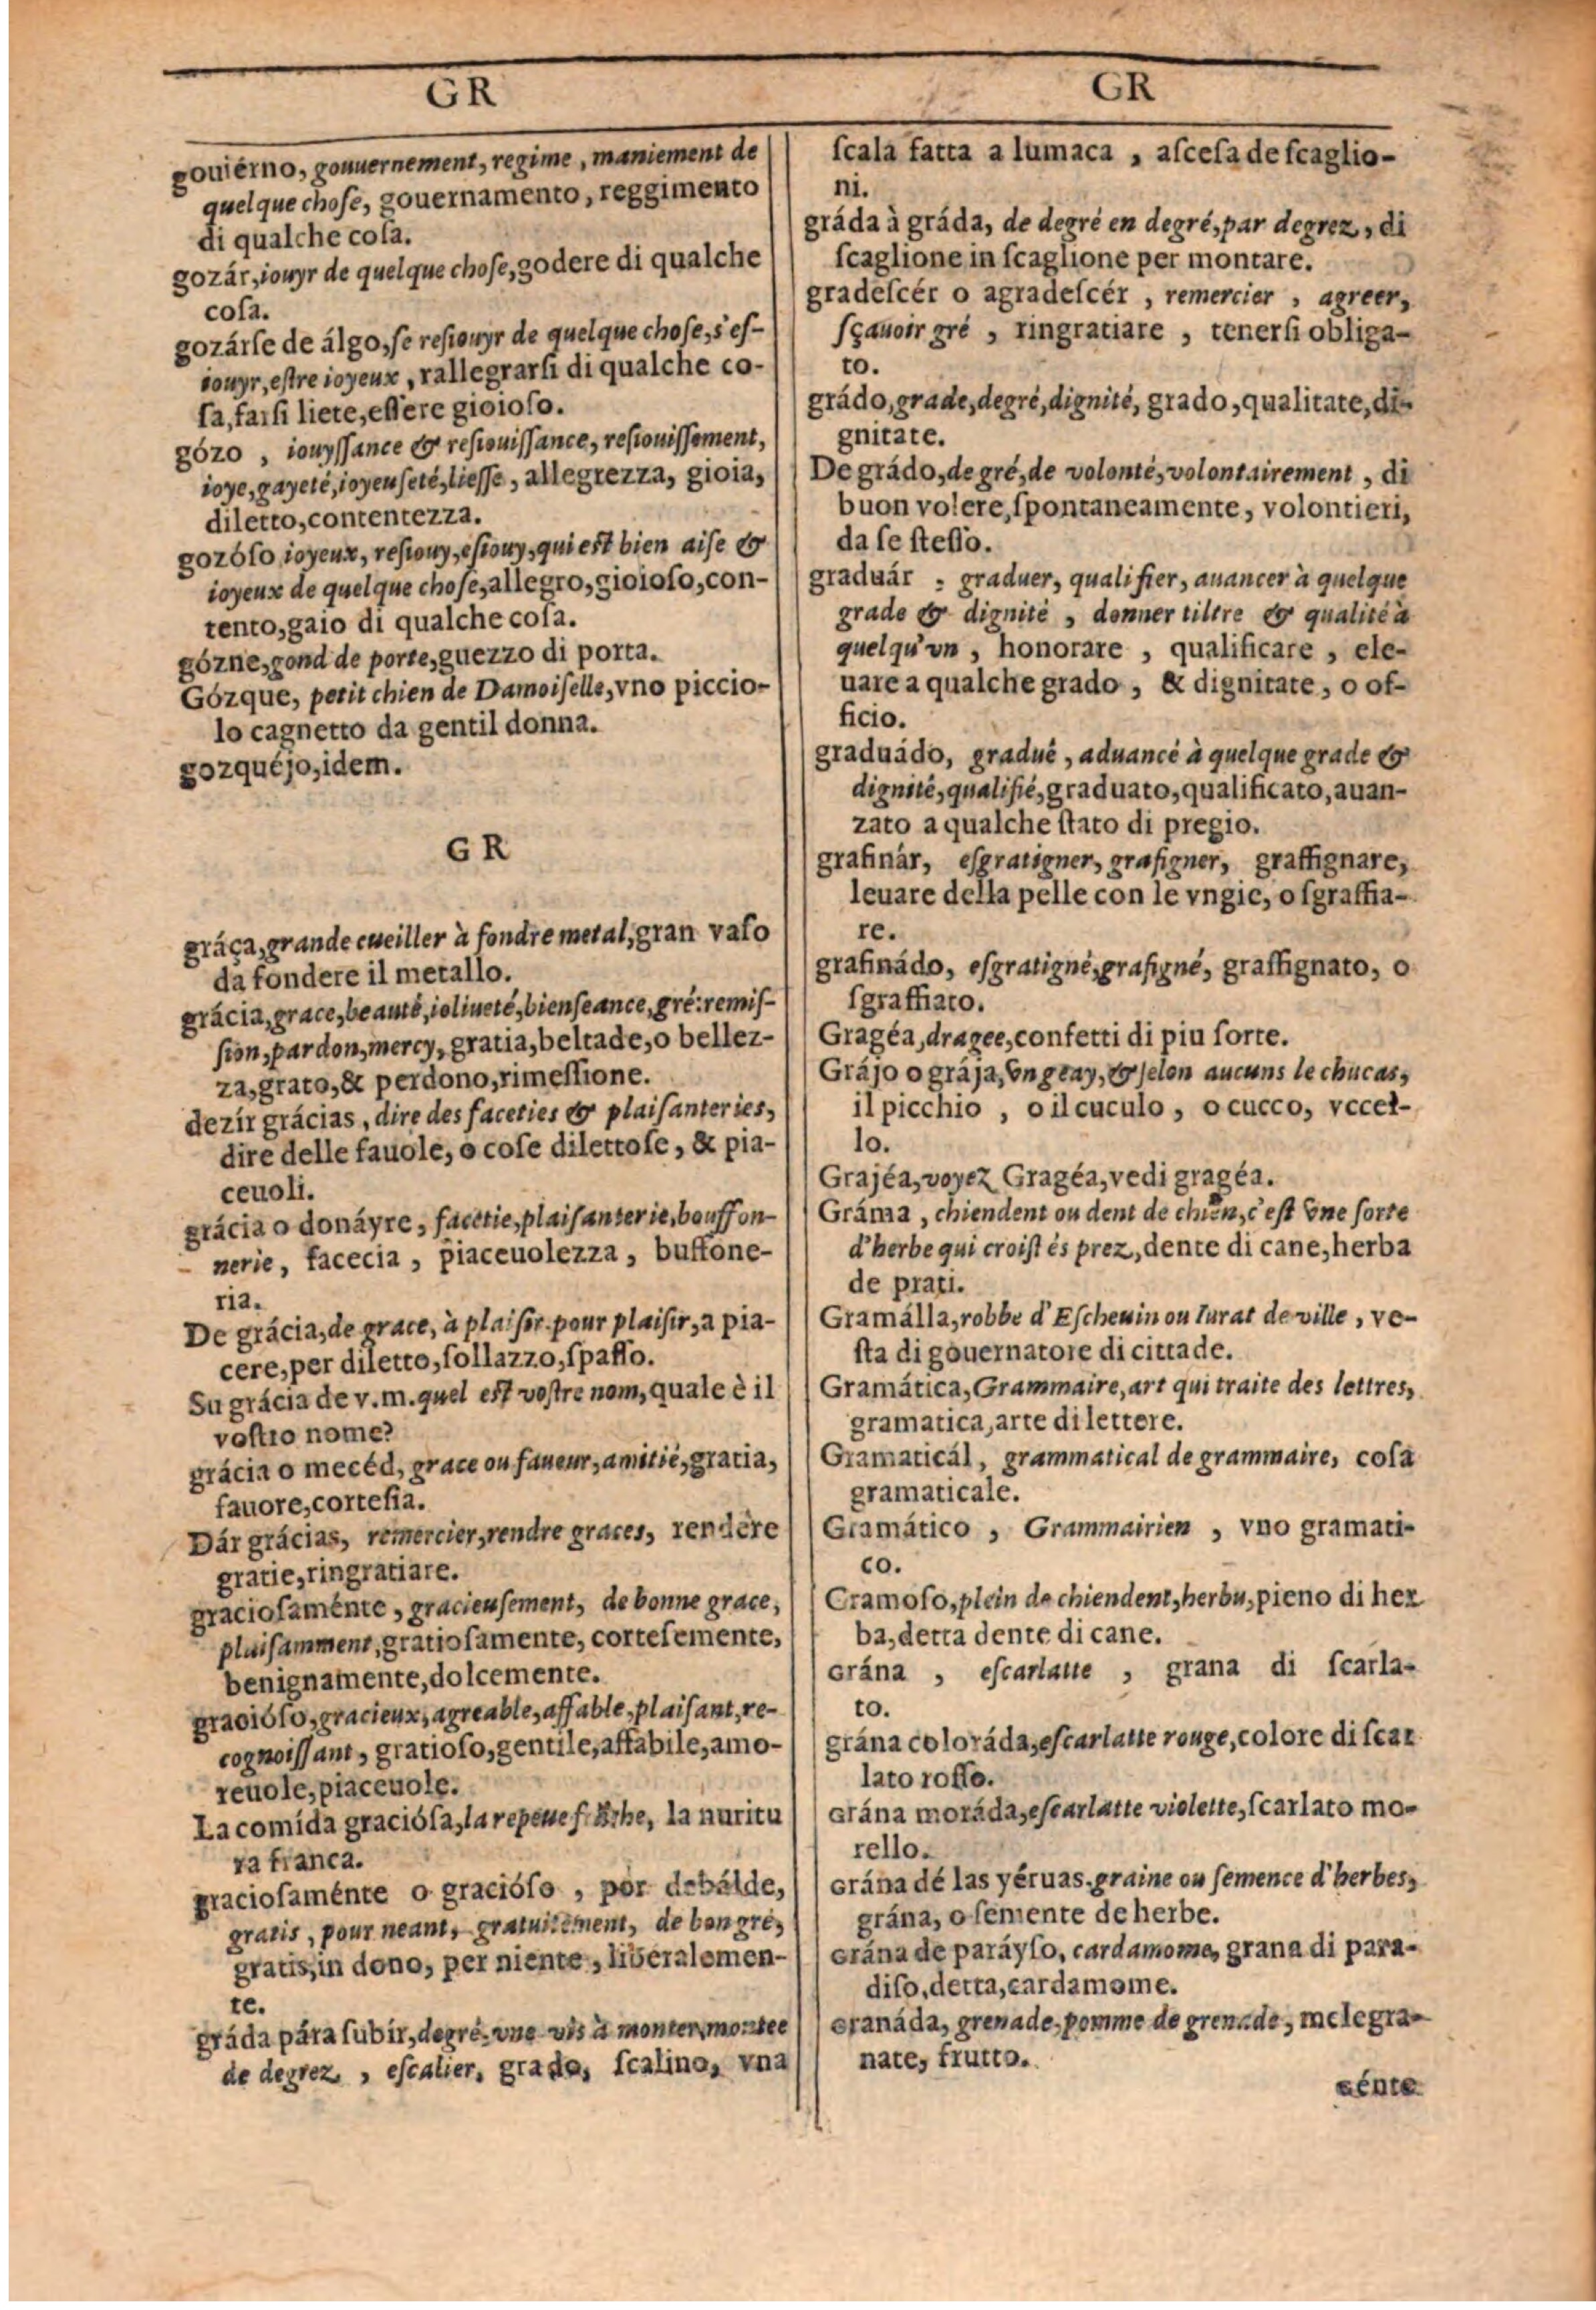 GR
gouiérno, gouuernement, regime, maniement de
quelque chose, gouernamento, reggimento
di qualche cosa.
gozár, iouyr de quelque chose, godere di qualche
cosa.
gozárse de álgo, se resiouyr de quelque chose, s'es-
iouyr, estre ioyeux, rallegrarsi di qualche co-
sa, farsi liete, essere gioioso.
gózo, iouyssance & resiouissance, resiouissement,
ioye, gayeté, ioyeuseté, liesse, allegrezza, gioia,
diletto, contentezza.
gozóso ioyeux, resiouy, esiouy, qui est bien aise &
ioyeux de quelque chose, allegro, gioioso, con-
tento, gaio di qualche cosa.
gózne, gond de porte, guezzo di porta.
Gózque, petit chien de Damoiselle, vno piccio-
lo cagnetto da gentil donna.
gozquéjo, idem.
GR
gráça, grande cueiller à fondre metal, gran vaso
da fondere il metallo.
grácia, grace, beauté, ioliueté, bienseance, gré: remis-
sion, pardon, mercy, gratia, beltade, o bellez-
za, grato, & perdono, rimessione.
dezír grácias, dire des faceties & plaisanteries,
dire delle fauole, o cose dilettose, & pia-
ceuoli.
grácia o donáyre, facetie, plaisanterie, bouffon-
nerie, facecia, piaceuolezza, buffone-
ria.
De grácia, de grace, à plaisir pour plaisir, a pia-
cere, per diletto, sollazzo, spasso.
Su grácia de v. m. quel est vostre nom, quale è il
vostro nome?
grácia o mecéd, grace ou faueur, amitié, gratia,
fauore, cortesia.
Dár grácias, remercier, rendre graces, rendere
gratie, ringratiare.
graciosaménte, gracieusement, de bonne grace,
plaisamment, gratiosamente, cortesemente,
benignamente, dolcemente.
gracióso, gracieux, agreable, affable, plaisant, re-
cognoissant, gratioso, gentile, affabile, amo-
reuole, piaceuole.
La comída graciósa, la repeue, la nuritu
ra franca.
graciosaménte o gracióso, pór debálde,
gratis, pour neant, gratuitement, de bon gré,
gratis, in dono, per niente, liberalemen-
te.
gráda pára subír, degré, vne vis à monter, montee
de degrez, escalier, grado, scalino, vna
GR
scala fatta a lumaca, ascesa de scaglio-
ni.
gráda à gráda, de degré en degré, par degrez, di
scaglione in scaglione per montare.
gradescér o agradescér, remercier, agreer,
sçauoir gré, ringratiare, tenersi obliga-
to.
grádo, grade, degré, dignité, grado, qualitate, di-
gnitate.
De grádo, de gré, de volonté, volontairement, di
buon volere, spontaneamente, volontieri,
da se stesso.
graduár, graduer, qualifier, auancer à quelque
grade & dignité, donner tiltre & qualité à
quelqu'vn, honorare, qualificare, ele-
uare a qualche grado, & dignitate, o of-
ficio.
graduádo, gradué, aduancé à quelque grade &
dignité, qualifié, graduato, qualificato, auan-
zato a qualche stato di pregio.
grafinár, esgratigner, grafigner, graffignare,
leuare della pelle con le vngie, o sgraffia-
re.
grafinádo, esgratigné, grafigné, graffignato, o
sgraffiato.
Gragéa, dragee, confetti di piu sorte.
Grájo o grája, vn geay, & selon aucuns le chucas,
il picchio, o il cuculo, o cucco, vccel-
lo.
Grajéa, voyez Gragéa, vedi gragéa.
Gráma, chiendent ou dent de chien, c'est vne sorte
d'herbe qui croist és prez, dente di cane, herba
de prati.
Gramálla, robbe d'Escheuin ou Iurat de ville, ve-
sta di gouernatore di cittade.
Gramática, Grammaire, art qui traite des lettres,
gramatica, arte di lettere.
Gramaticál, grammatical de grammaire, cosa
gramaticale.
Gramático, Grammairien, vno gramati-
co.
Gramoso, plein de chiendent, herbu, pieno di her
ba, detta dente di cane.
Grána, escarlatte, grana di scarla-
to.
grána coloráda, escarlatte rouge, colore di scar
lato rosso.
Grána moráda, escarlatte violette, scarlato mo-
rello.
Grána dé las yéruas, graine ou semence d'herbes,
grána, o semente de herbe.
Grána de paráyso, cardamome, grana di para-
diso, detta, cardamome.
Granáda, grenade, pomme de grenade, melegra-
nate, frutto.